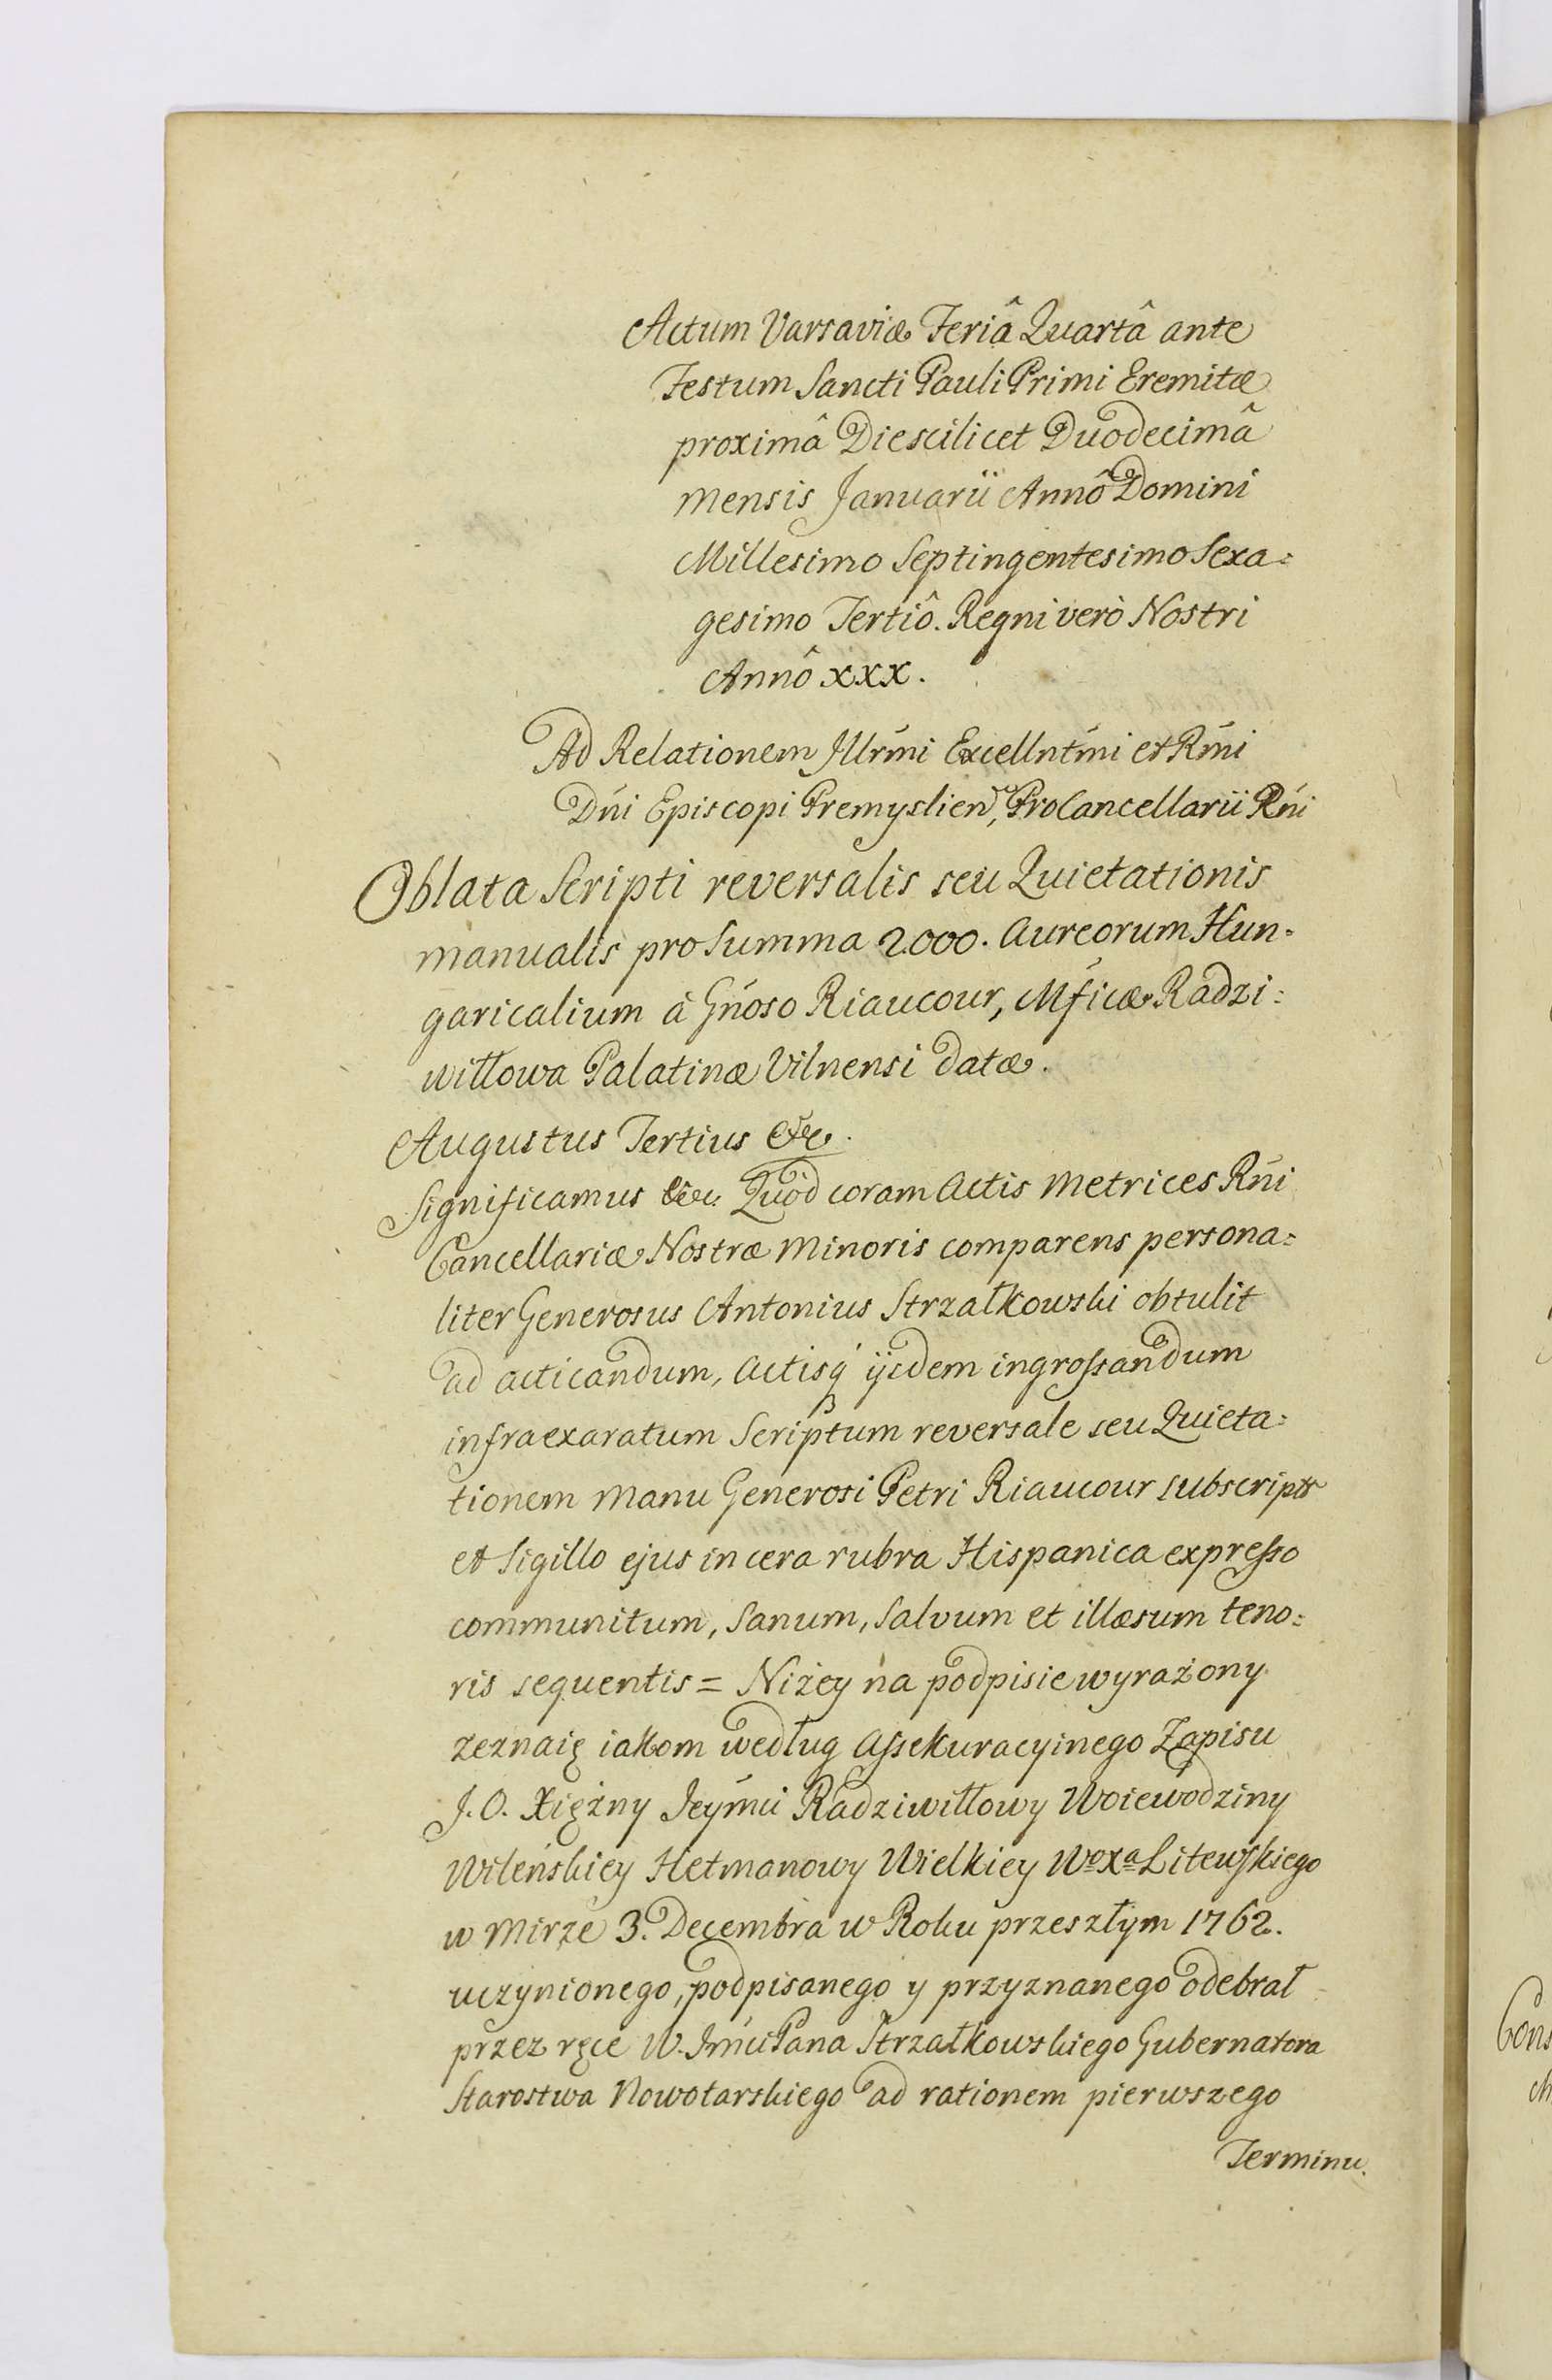 Actum Varsaviæ Feriâ Quartâ ante
Festum Sancti Pauli Primi Eremitæ
proximâ Die scilicet Duodecimâ
mensis Januarii Annô Domini
Millesimo Septingentesimo Sexa=
gesimo Tertiô. Regni verò Nostri
Annô XXX.
Ad Relationem Illrm̃i Excellntm̃i et Rm̃i
Dñi Episcopi Premyslien, ProCancellarii Rñi
Oblata Scripti reversalis seu Quietationis
manualis pro Summa 2000. Aureorum Hun-
garicalium à Gñoso Riaucour, Mficæ Radzi=
wiłłowa Palatinæ Vilnensi datæ.
Augustus Tertius &c.
Significamus &c. Quòd coram Actis Metrices Rñi
Cancellariæ Nostræ Minoris comparens persona=
liter Generosus Antonius Strzałkowski obtulit
ad acticandum, Actisq́ ijsdem ingrossandum
infraexaratum Scriptum reversale seu Quieta=
tionem manu Generosi Petri Riaucour subscriptã
et Sigillo ejus in cera rubra Hispanica expresso
communitum, Sanum, Salvum et illæsum teno=
ris sequentis = Niżey na podpisie wyrażony
zeznaię iakom według Assekuracyinego Zapisu
J. O. Xiężny Jeym̃ci Radziwiłłowy Woiewodziny
Wileńskiey Hetmanowy Wielkiey Wo Xa Litewskiego
w Mirze 3. Decembra w Roku przeszłym 1762.
uczynionego, podpisanego y przyznanego odebrał
przez ręce W. Jm̃ci Pana Strzałkowskiego Gubernatora
Starostwa Nowotarskiego ad rationem pierwszego
Terminu.
Cons